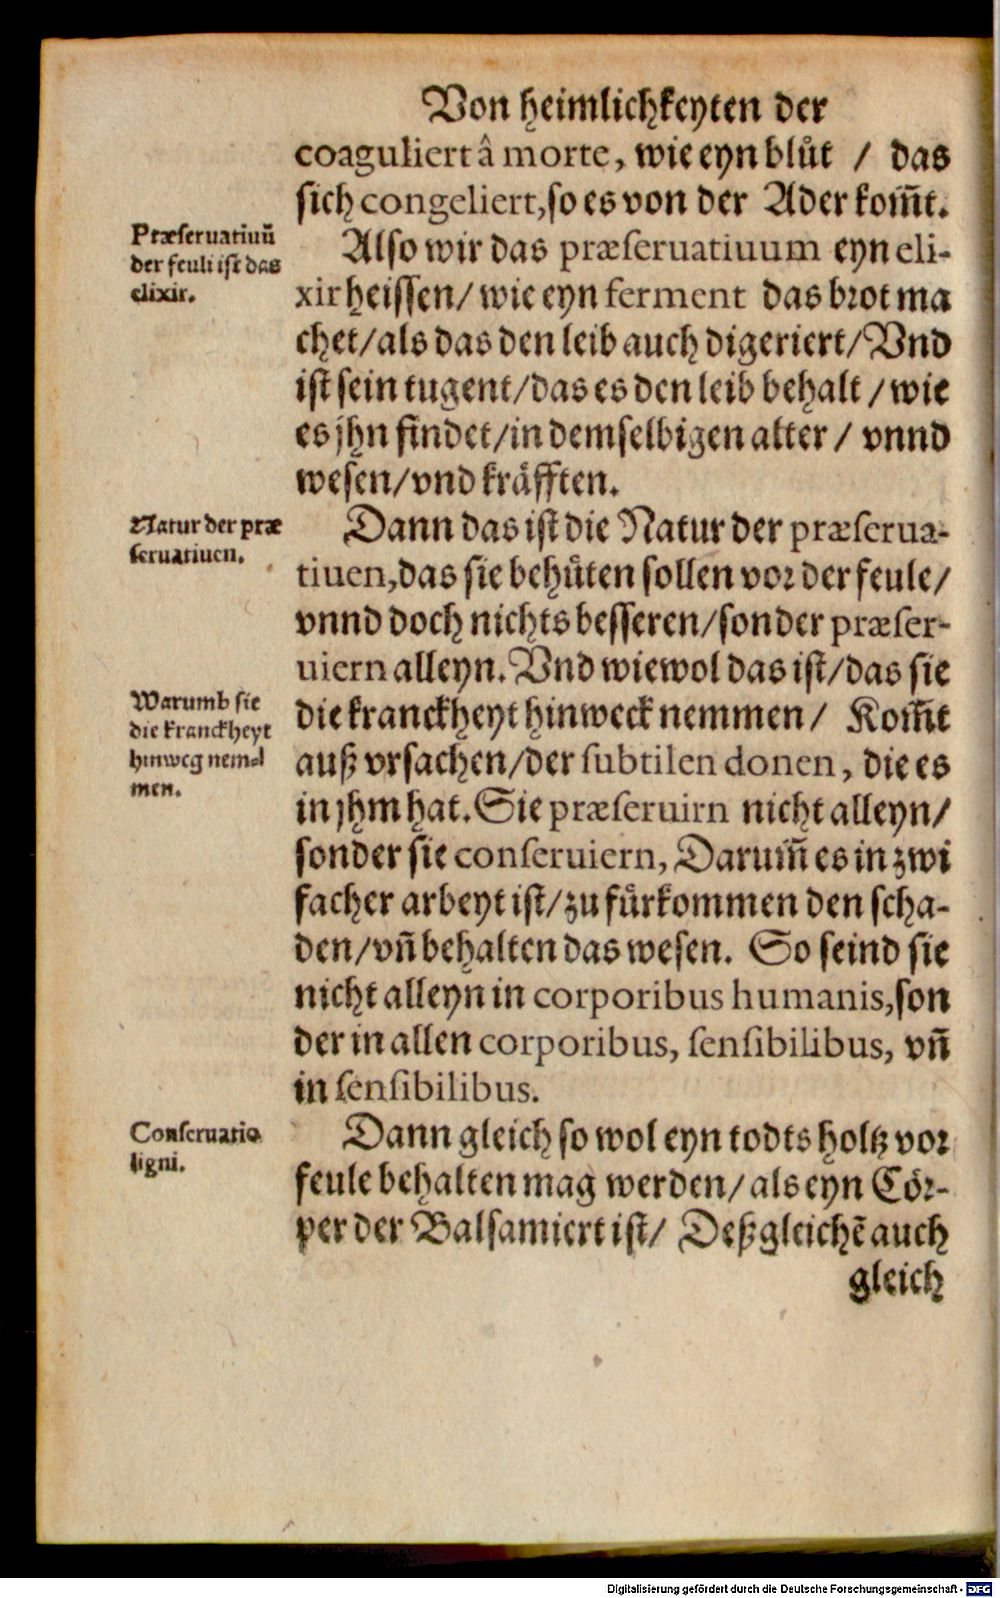 Von heimlichkeyten der
coaguliert â morte, wie eyn blůt / das
sich congeliert, so es von der Ader kom̃t.
Præseruatiuũ
der feuli ist das
elixir.
Also wir das præseruatiuum eyn eli-
xir heissen / wie eyn ferment das brot ma
chet / als das den leib auch digeriert / Vnd
ist sein tugent / das es den leib behalt / wie
es jhn findet / in demselbigen alter / vnnd
wesen / vnd kräfften.
Natur der præ
seruatiuen.
Dann das ist die Natur der præserua-
tiuen, das sie behůten sollen vor der feule /
vnnd doch nichts besseren / sonder præser-
uiern alleyn. Vnd wiewol das ist / das sie
Warumb sie
die kranckheyt
hinweg nem-
men.
die kranckheyt hinweck nemmen / Kom̃t
auß vrsachen / der subtilen donen, die es
in jhm hat. Sie præseruirn nicht alleyn /
sonder sie conseruiern, Darum̃ es in zwi
facher arbeyt ist / zu fürkommen den scha-
den / vñ behalten das wesen. So seind sie
nicht alleyn in corporibus humanis, son
der in allen corporibus, sensibilibus, vñ
in sensibilibus.
Conseruatio
ligni.
Dann gleich so wol eyn todts holtz vor
feule behalten mag werden / als eyn Cör-
per der Balsamiert ist / Deßgleichẽ auch
gleich
Digitalisierung gefördert durch die Deutsche Forschungsgemeinschaft - DFG